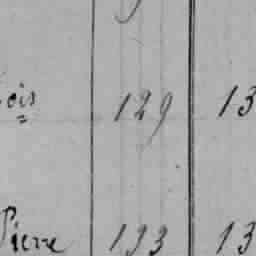 ois 129 13
Pierre 193 13